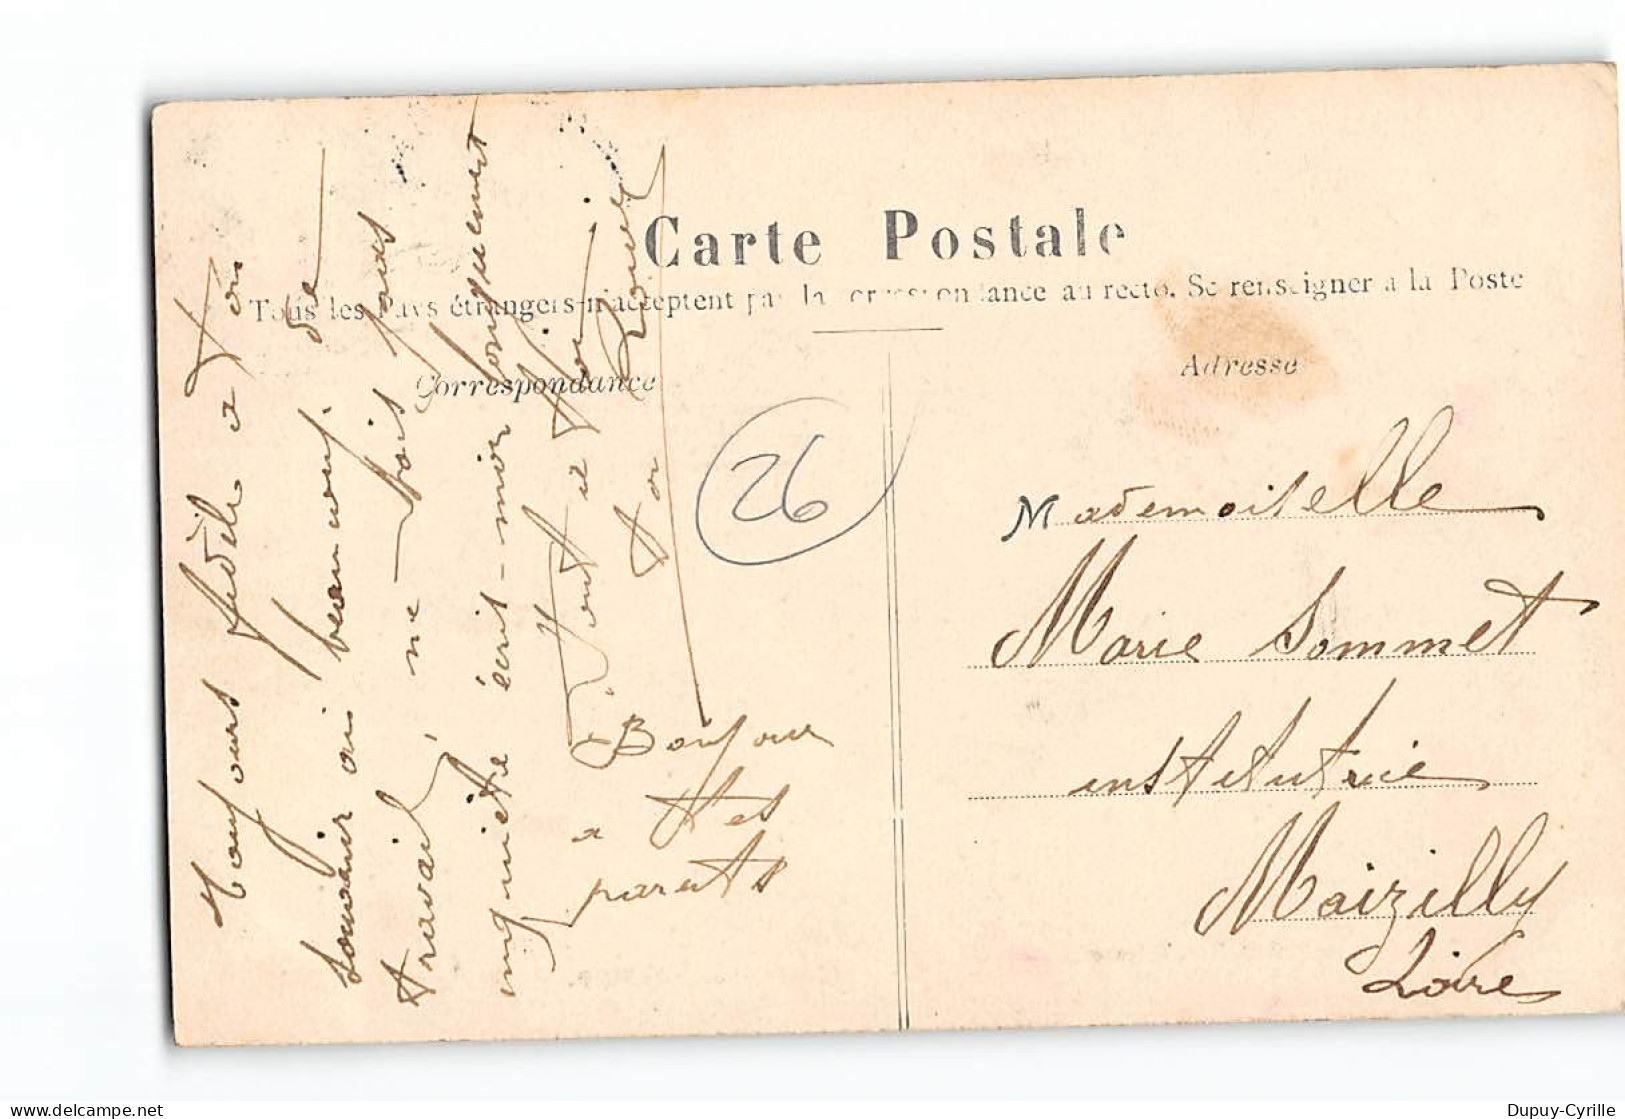 Carte Postale
Tous les Pays étrangers n'acceptent pas la correspondance au recto. Se renseigner à la Poste
Correspondance
Adresse
Toujours fidèle a ton
souvenir ai beaucoup de
travail, ne sois pas
inquiète écrit-moi longuement
Tout à toi
ton
Bonjour
a tes
parents
26
Mademoiselle
Marie Sommet
institutrice
Maizilly
Loire
Dupuy-Cyrille